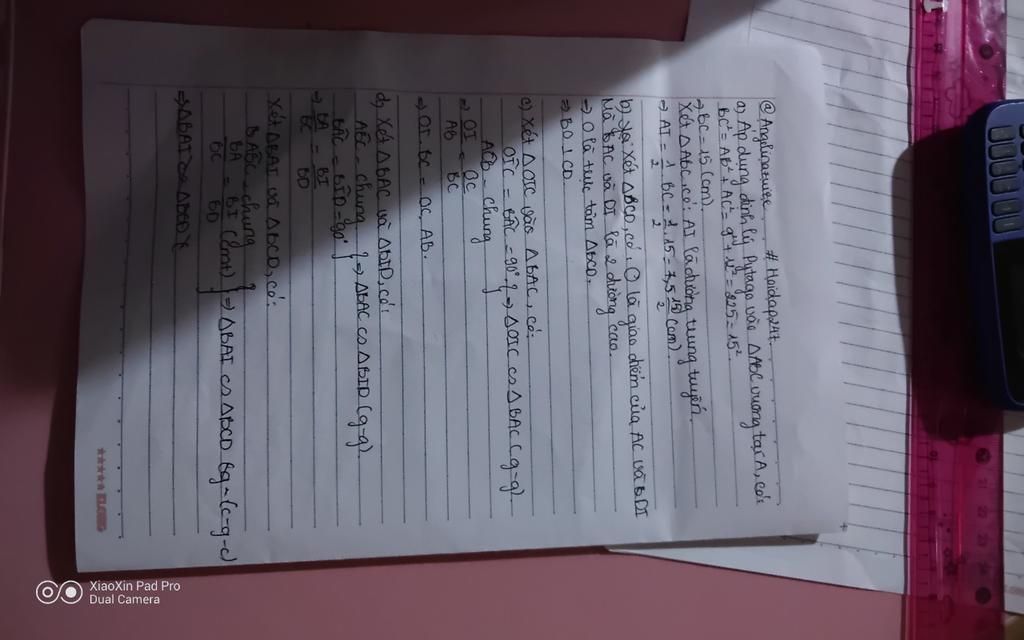 @Angelinatwice # Hoidap247.
a) Áp dụng định lý Pytago vào ΔABC vuông tại A, có:
BC² = AB² + AC² = 9² + 12² = 225 = 15².
⇒ BC = 15 (cm).
Xét ΔABC, có: AI là đường trung tuyến.
⇒ AI = 1/2 . BC = 1/2 . 15 = 7,5 15/2 (cm).
b) Xét ΔBCD, có: O là giao điểm của AC và DI
Mà BAC và DI là 2 đường cao.
⇒ O là trực tâm ΔBCD.
⇒ BO ⊥ CD.
c) Xét ΔOIC và ΔBAC, có:
OIC = BAC = 90° } ⇒ ΔOIC ∽ ΔBAC (g-g)
ACB - chung
⇒ OI/AB = OC/BC
⇒ OI . BC = OC . AB.
d) Xét ΔBAC và ΔBID, có:
ABC - chung } ⇒ ΔBAC ∽ ΔBID (g-g).
BAC = BID = 90°
⇒ BA/BC = BI/BD
Xét ΔBAI và ΔBCD, có:
ABC - chung } ⇒ ΔBAI ∽ ΔBCD (c-g-c)
BA/BC = BI/BD (cmt)
⇒ ΔBAI ∽ ΔBCD
XiaoXin Pad Pro
Dual Camera